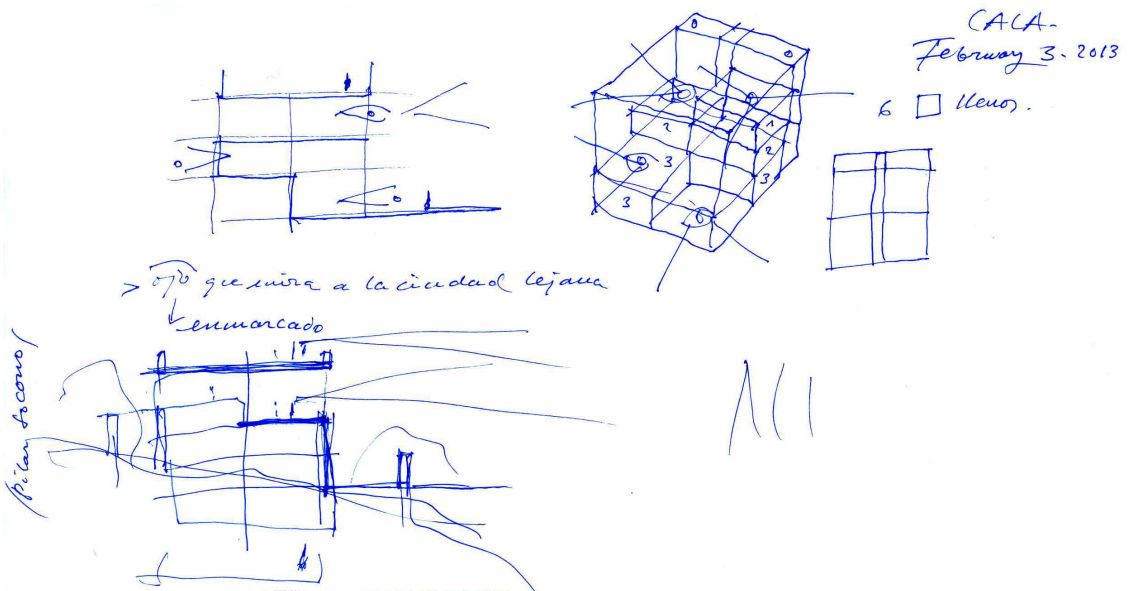 CALA-
February 3-2013
6 □ llenos.
0
0
0
0
1
1
2
2
3
3
3
> ojo que mira a la ciudad lejana
enmarcado
Pilar